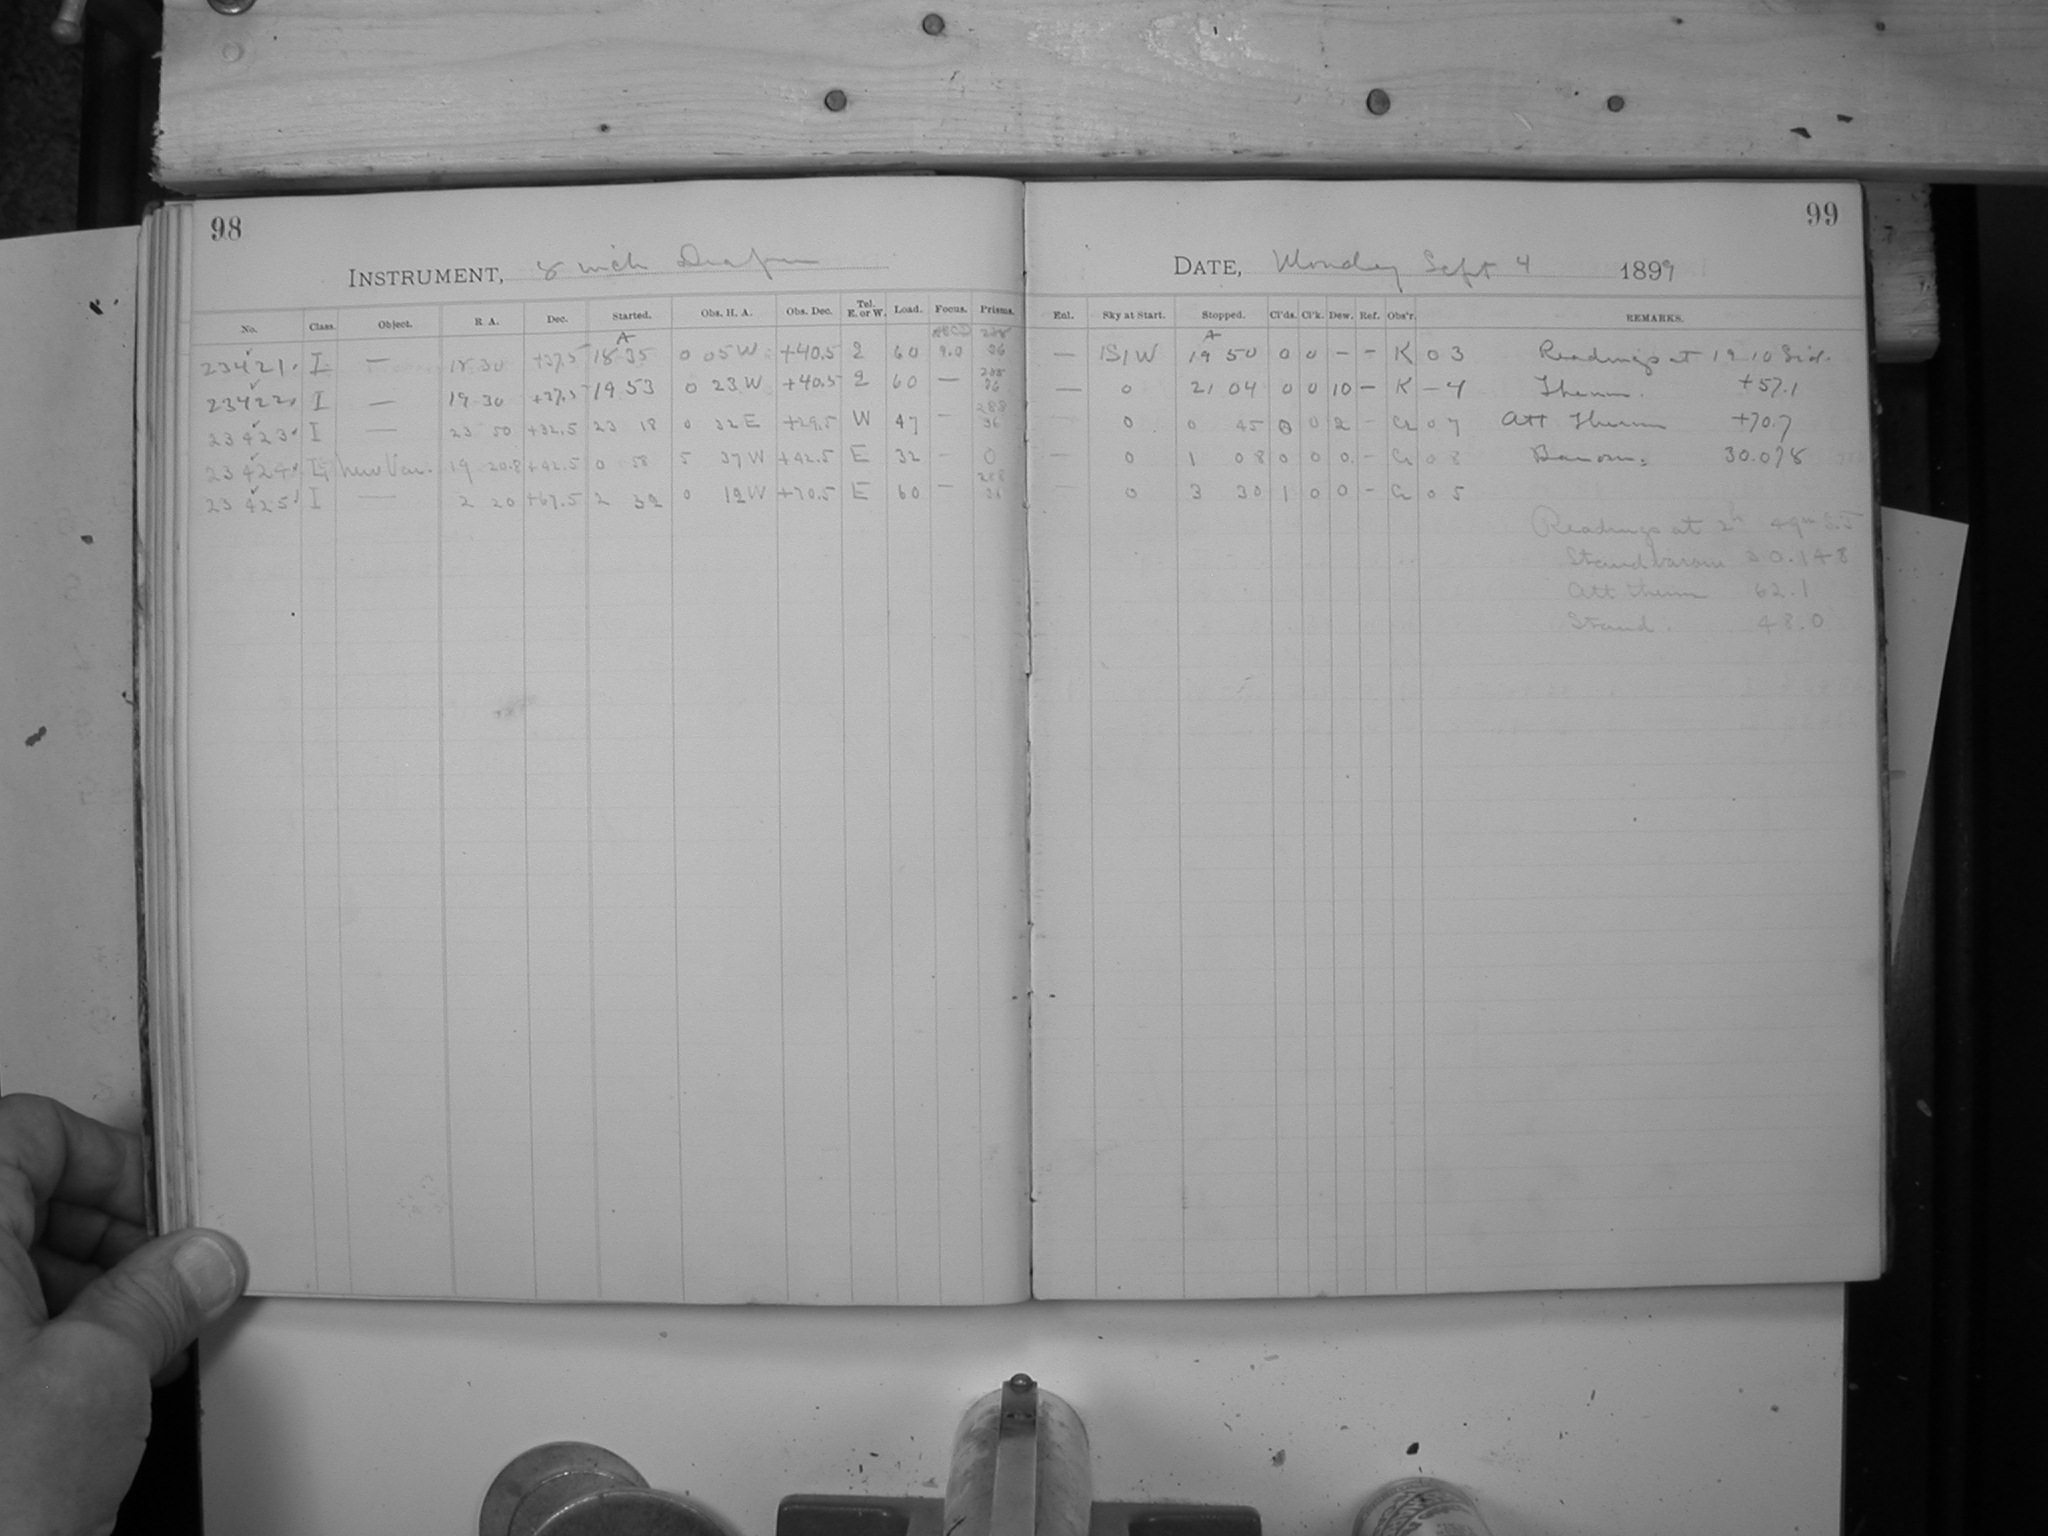 98
INSTRUMENT, 8 inch Draper
No. Class. Object. R. A. Dec. Started. Obs. H. A. Obs. Dec. Tel. E. or W. Load. Focus. Prisms.
23421 I — 18 30 +37.5 18 35 0 05 W +40.5 2 60 9.0
23422 I — 19 30 +37.5 19 53 0 23 W +40.5 2 60 —
23423 I — 23 50 +32.5 23 18 0 32 E +29.5 W 47 — 288 36
23424 New Var. 19 20.8 +42.5 0 58 5 37 W +42.5 E 32 – 0
23425 I — 2 20 +67.5 2 32 0 12 W +70.5 E 60 – 288 36
99
DATE, Monday Sept 4 1899
Enl. Sky at Start. Stopped. Cl'ds. Cl'k. Dew. Ref. Obs'r. REMARKS.
A
— 1S1W 19 50 0 0 – – K 0 3 Readings at 19 10 Sid.
— 0 21 04 0 0 10 – K – 4 Therm. +57.1
0 0 45 0 0 2 – 0 7 Att Therm +70.7
— 0 1 08 0 0 0 – 0 8 Barom. 30.078
0 3 30 1 0 0 – 0 5
Readings at 2h 49m
Stand barom 30.148
Att therm 62.1
Stand. 48.0